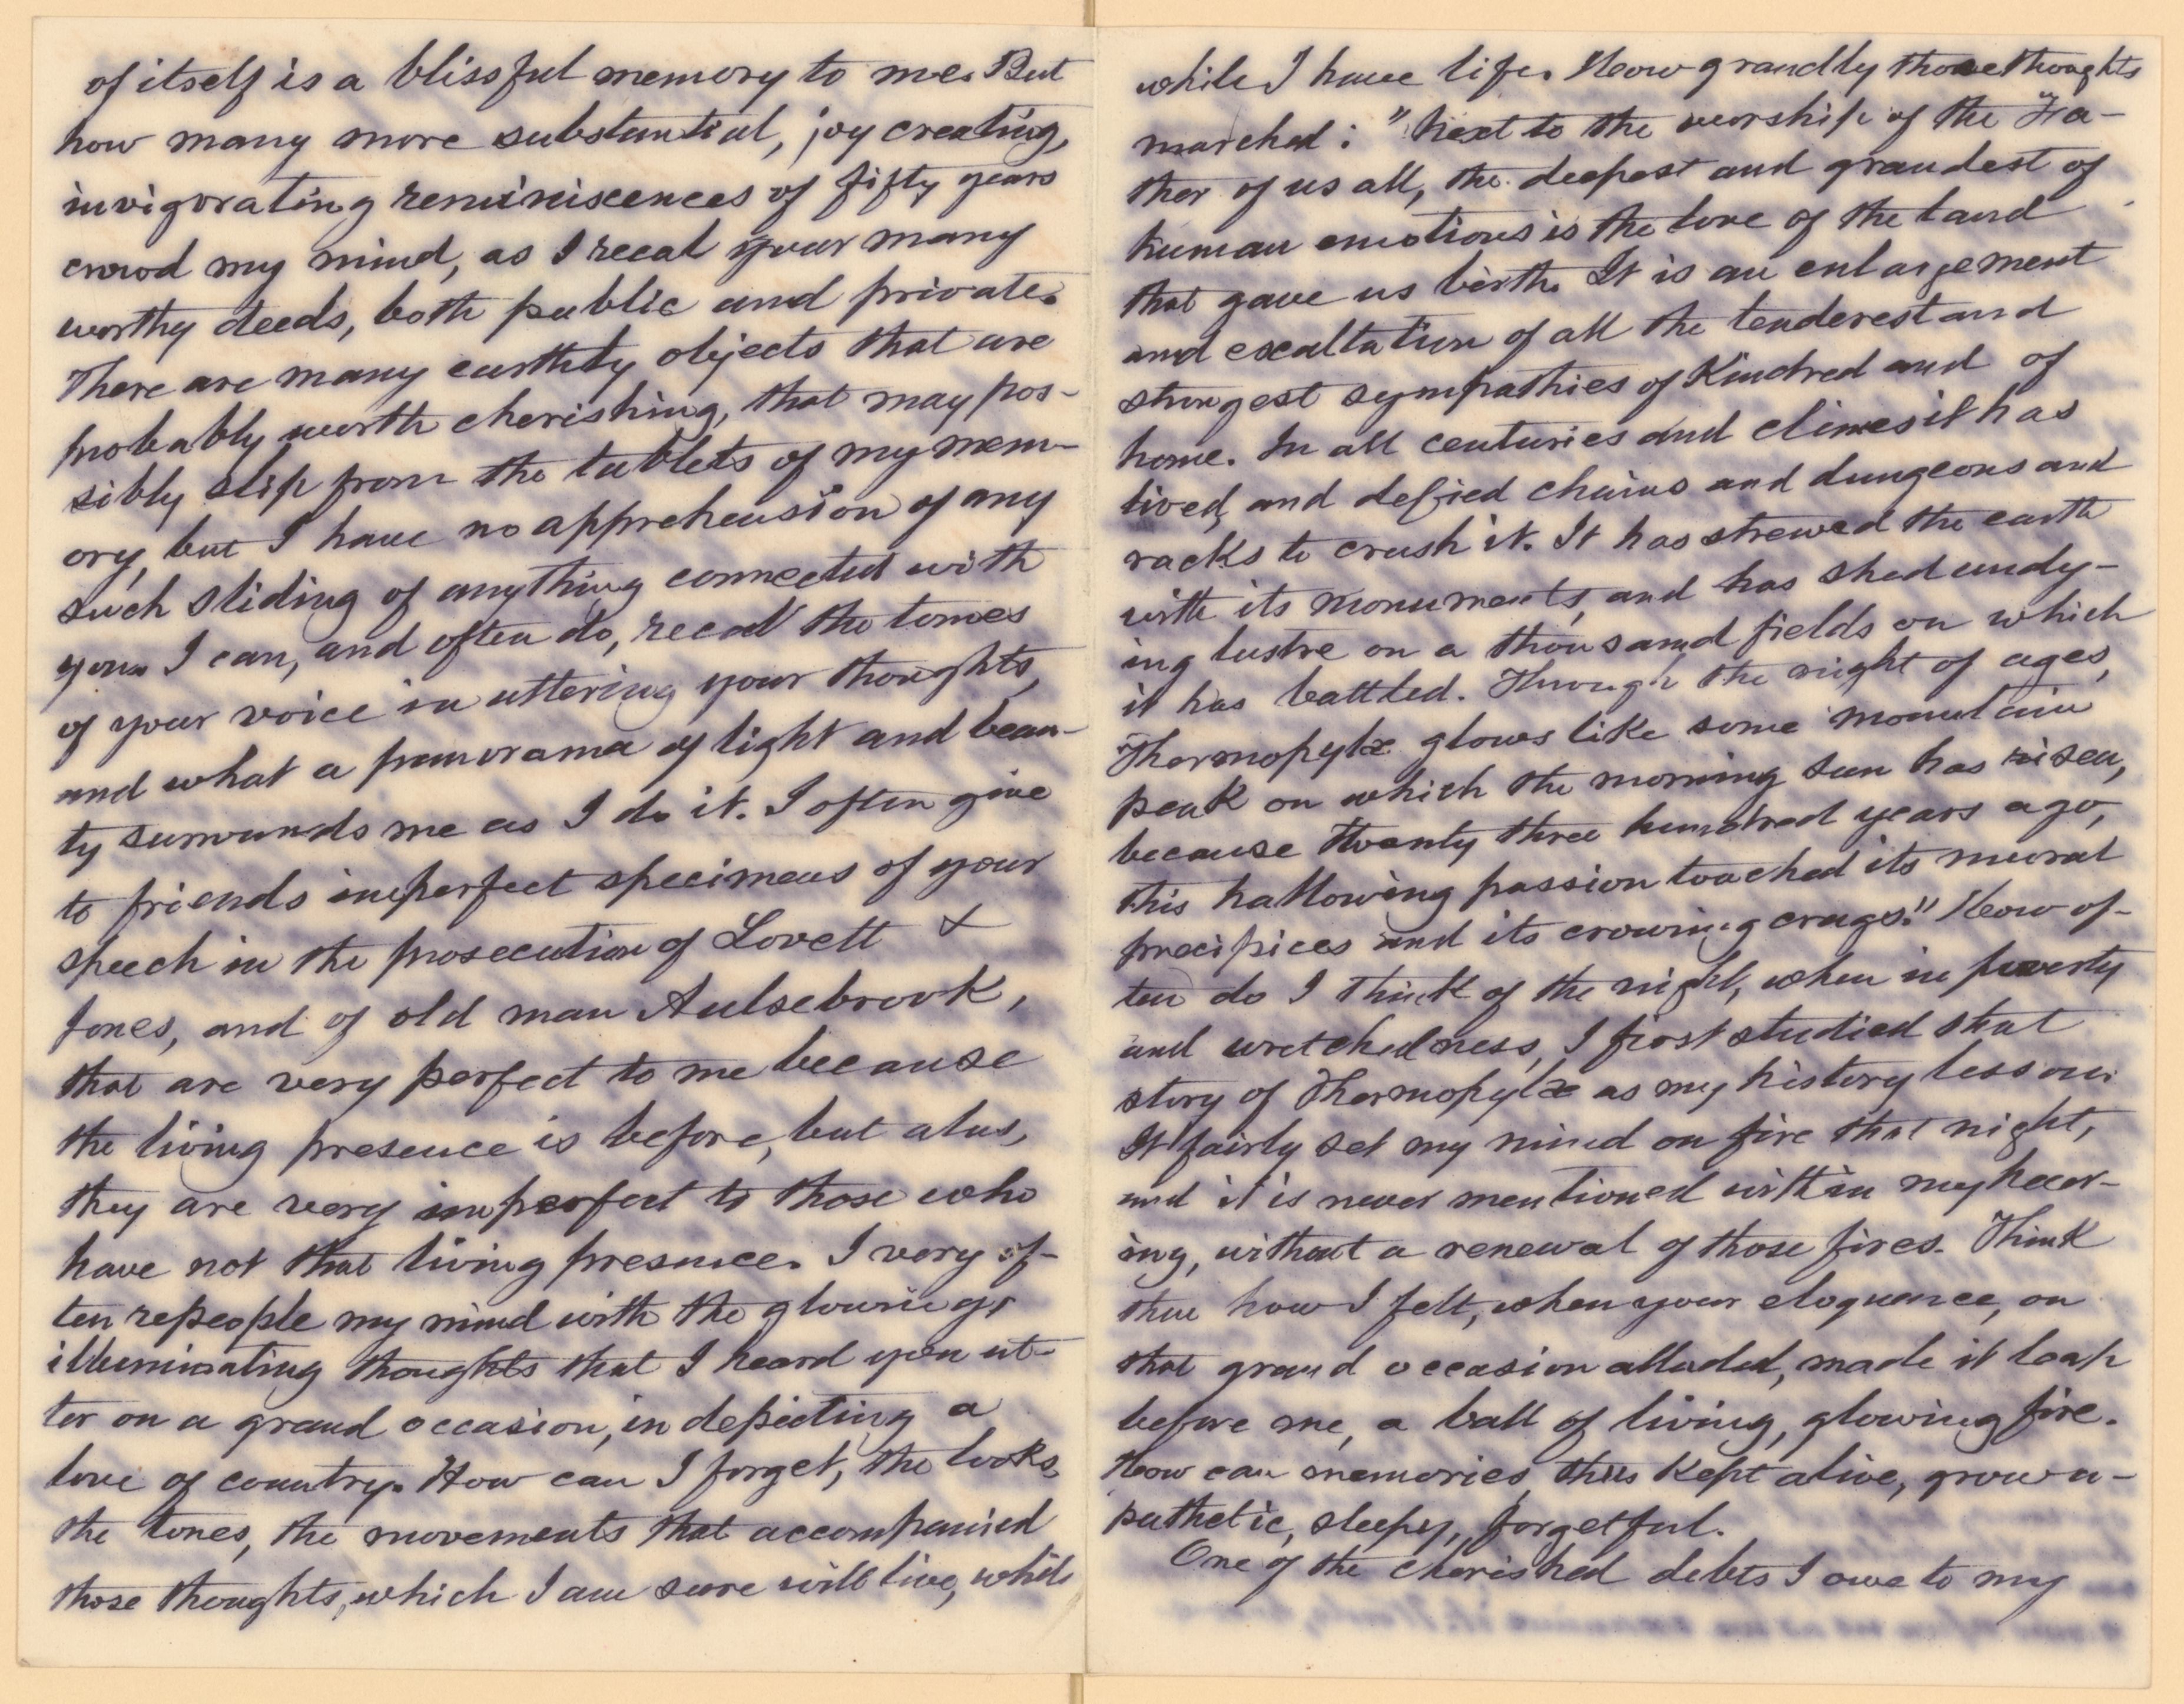 of itself is a blissful memory to me. But
how many more substantial, joy creating,
invigorating reminiscences of fifty years
crowd my mind, as I recal your many
worthy deeds, both public and private.
There are many earthly objects that are
probably worth cherishing, that may pos-
sibly slip from the tablets of my mem-
ory, but I have no apprehension of any
such sliding of anything connected with
you. I can, and often do, recal the tones
of your voice in uttering your thoughts,
and what a panorama of light and beau-
ty surrounds me as I do it. I often give
to friends imperfect specimens of your
speech in the prosecution of Lovett &
Jones, and of old man Aulsebrook,
that are very perfect to me because
the living presence is before, but alas,
they are very imperfect to those who
have not that living presence. I very of-
ten repeople my mind with the glowing,
illuminating thoughts that I heard you ut-
ter on a grand occasion, in depicting a
love of country. How can I forget, the looks,
the tones, the movements that accompanied
those thoughts, which I am sure will live, while
while I have life. How grandly those thoughts
marched: "Next to the worship of the Fa-
ther of us all, the deepest and grandest of
human emotions is the love of the land
that gave us birth. It is an enlargement
and exaltation of all the tenderest and
strongest sympathies of Kindred and of
home. In all centuries and climes it has
lived, and defied chains and dungeons and
racks to crush it. It has strewed the earth
with its monuments, and has shed undy-
ing lustre on a thousand fields on which
it has battled. Through the night of ages,
Thermopylæ glows like some mountain
peak on which the morning sun has risen,
because twenty three hundred years ago,
this hallowing passion touched its mural
precipices and its crowning crags." How of-
ten do I think of the night, when in poverty
and wretchedness, I first studied that
story of Thermopylæ as my history lesson.
It fairly set my mind on fire that night,
and it is never mentioned within my hear-
ing, without a renewal of those fires. Think
then how I felt, when your eloquence, on
that grand occasion alluded, made it leap
before me, a ball of living, glowing fire.
How can memories, thus Kept alive, grow a-
pathetic, sleepy, forgetful.
One of the cherished debts I owe to my